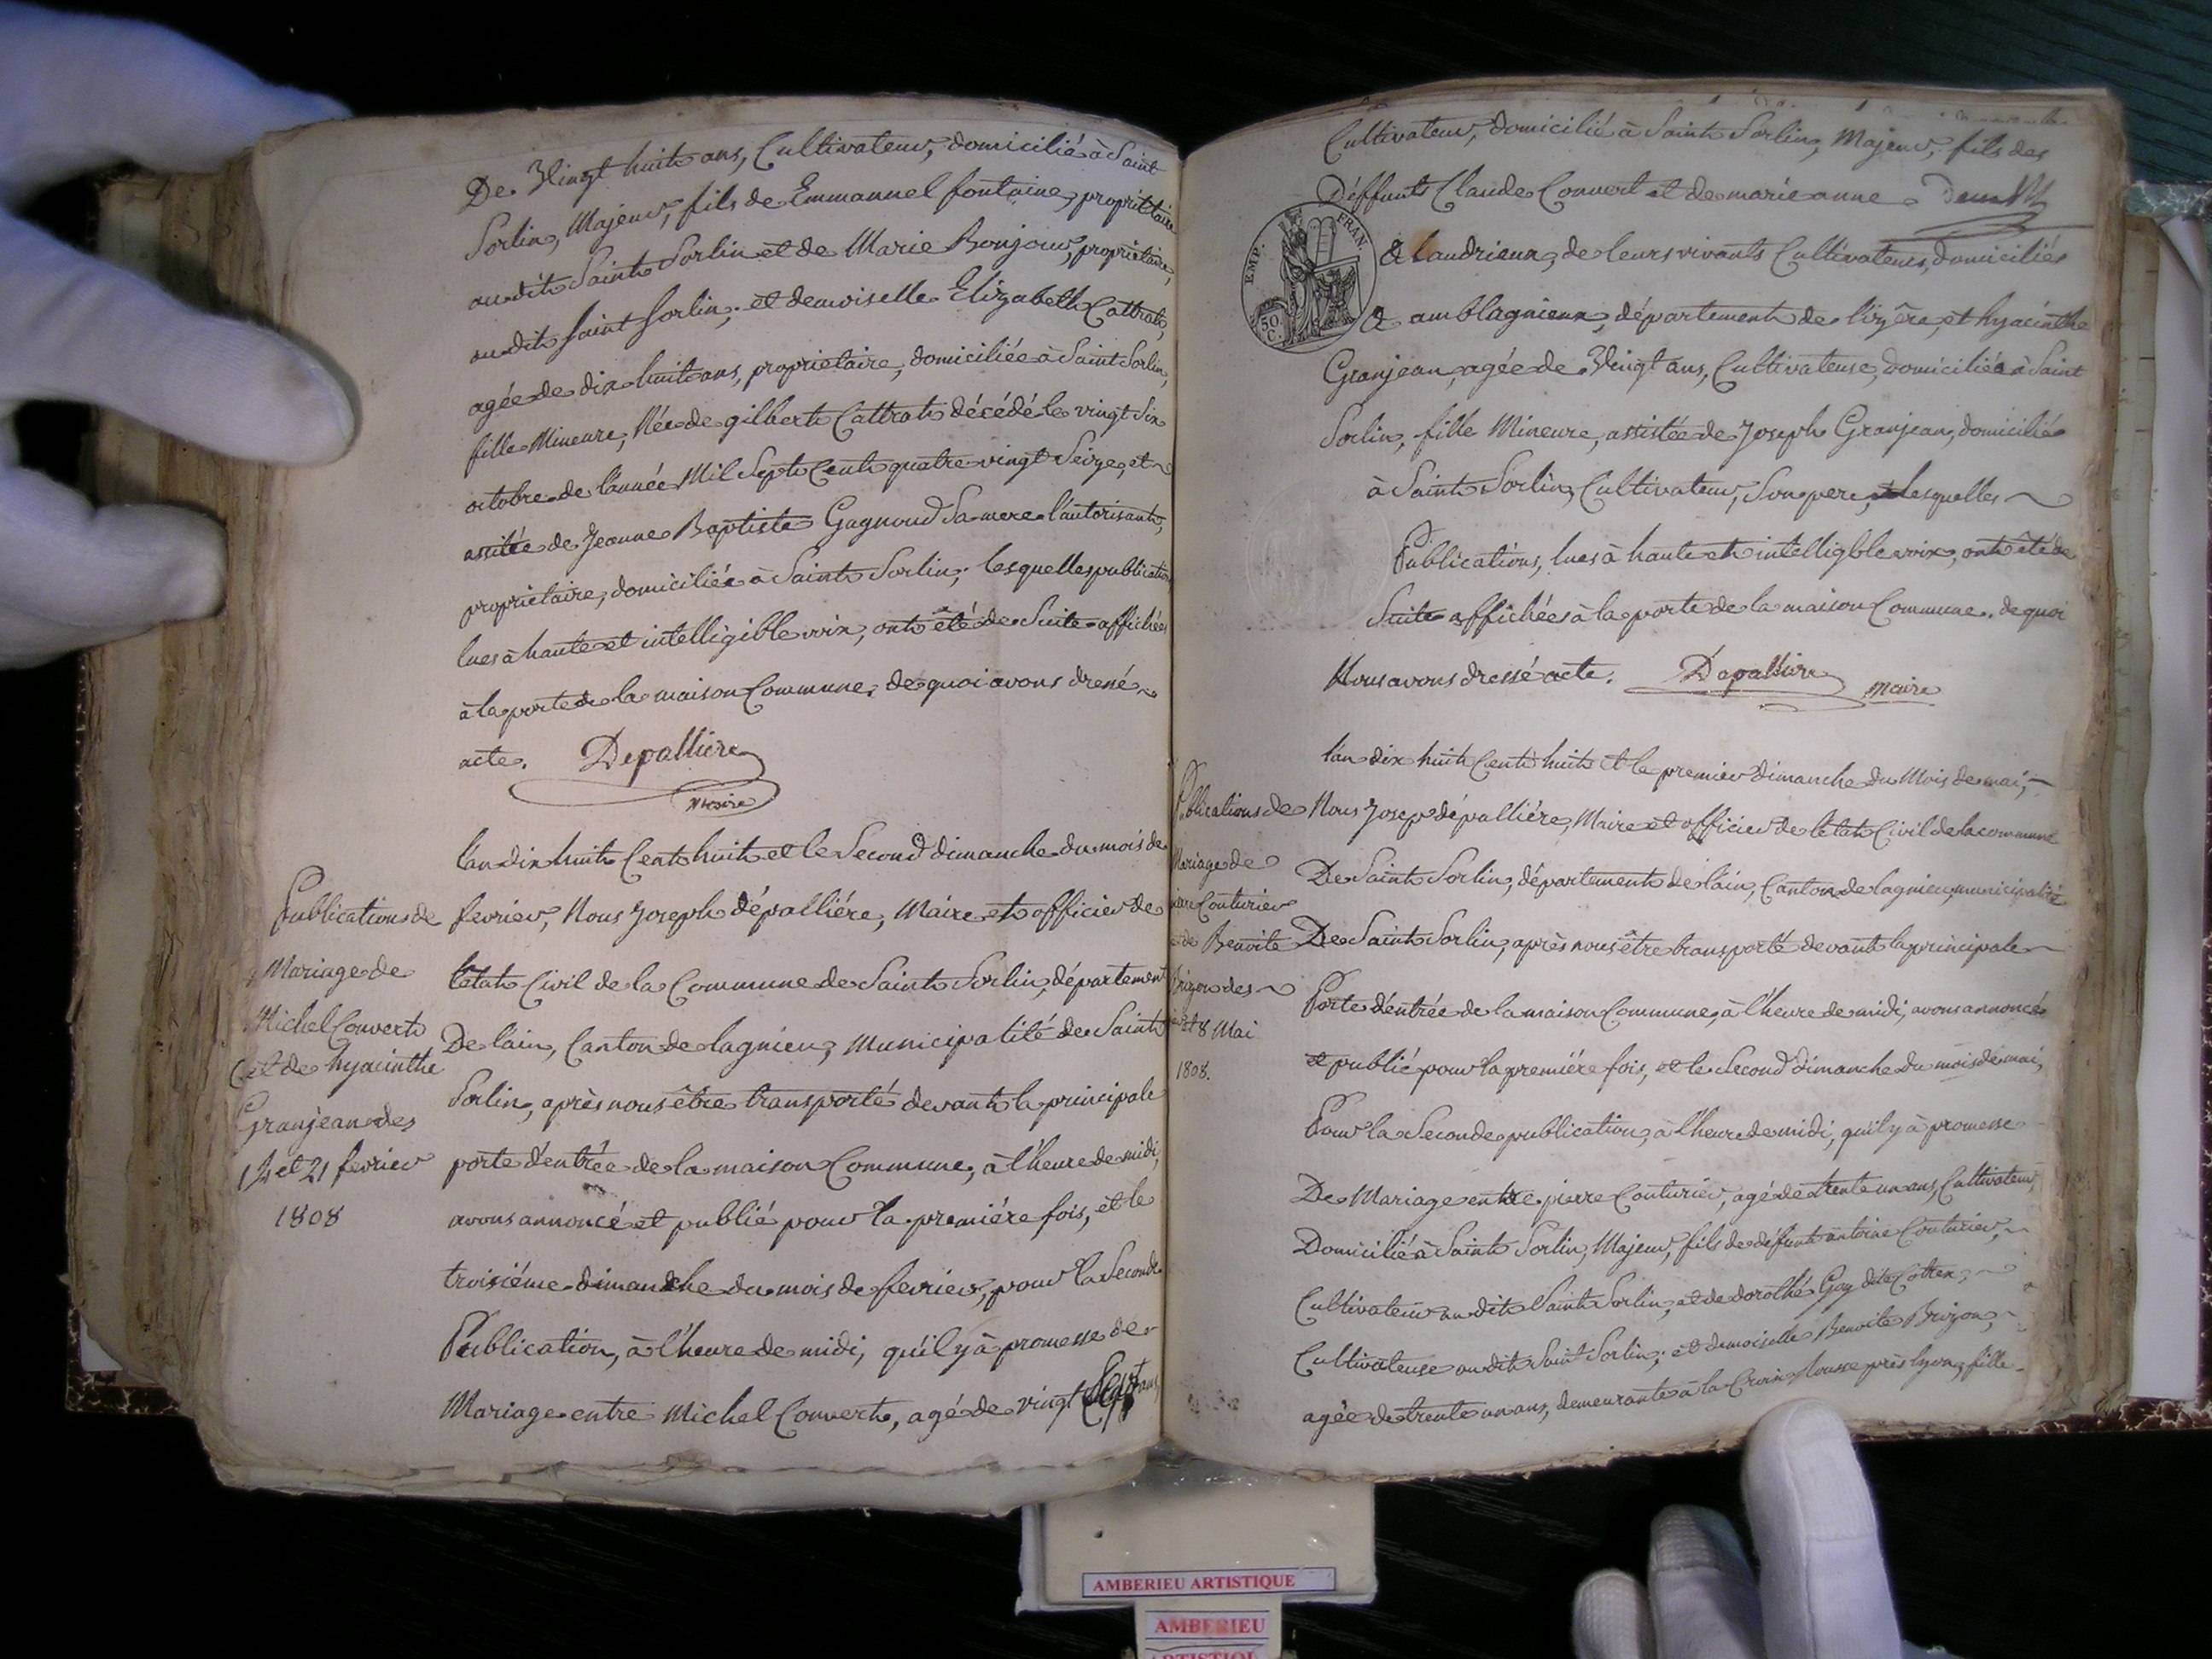 De Vingt huit ans, Cultivateur, domicilié à Saint
Sorlin, Majeur, fils de Emmanuel fontaine, propriétaire
audit Saint Sorlin et de Marie Bonjour, propriétaire,
audit Saint Sorlin; et demoiselle Elizabeth Cattrat,
agée de dix huit ans, proprietaire, domiciliée à Saint Sorlin,
fille Mineure, Née de gilbert Cattrat décédé le vingt Six
octobre de l'année Mil Sept Cent quatre vingt Seize, et
assitée de Jeanne Baptiste Gagnoud Sa mere l'autorisant,
proprietaire, domiciliée à Saint Sorlin; lesquelles publications
lues à haute et intelligible voix, ont été de Suite affichées
à la porte de la maison Commune, de quoi avons dressé
acte. Depallière
maire
lan dix huit Cent huit et le Second dimanche du mois de
Publications de
Mariage de
Michel Convert
et de hyacinthe
Granjean des
14 et 21 fevrier
1808
fevrier, Nous Joseph dépalliére, Maire et officier de
letat Civil de la Commune de Saint Sorlin, département
De lain, Canton de lagnieu, Municipalité de Saint
Sorlin, après nous être transporté devant la principale
porte d'entrée de la maison Commune, à l'heure de midi,
avons annoncé et publié pour la premiére fois, et le
troisiéme dimanche du mois de fevrier, pour la Seconde
Publication, à l'heure de midi, qu'il y à promesse de
Mariage entre Michel Convert, agé de vingt Sept ans,
Cultivateur, domicilié à Saint Sorlin, Majeur, fils des
Déffunts Claude Convert et de marie anne
EMP. FRAN.
50 C.
Claudrieux, de leurs vivants Cultivateurs, domiciliés
à amblagnieux, département de l'izère, et hyacinthe
Granjean, agée de Vingt ans, Cultivateuse, domiciliée à Saint
Sorlin, fille Mineure, assistée de Joseph Granjean, domicilié
à Saint Sorlin, Cultivateur, Son pere, lesquelles
Publications, lues à haute et intelligble voix, ont été de
Suite affichées à la porte de la maison Commune. de quoi
Nous avons dressé acte. Dépallière maire
lan dix huit Cent huit et le premier dimanche du Mois de mai,
Publications de
Mariage de
pierre Couturier
et de Benoite
Brizon des
1er et 8 Mai
1808.
Nous Josep dépalliére, Maire et officier de létat Civil de la commune
De Saint Sorlin, département de lain, Canton de lagnieu, municipalité
De Saint Sorlin, après nous être transporté devant la principale
Porte d'éntrée de la maison Commune, à l'heure de midi, avons annoncé
et publié pour la premiére fois, et le Second dimanche du mois de mai,
Pour la Seconde publication, à l'heure de midi, qu'il y à promesse
De Mariage entre pierre Couturier, agé de trente un ans, Cultivateur,
Domicilié à Saint Sorlin, Majeur, fils de défunt antoine Couturier,
Cultivateur audit Saint Sorlin, et de dorothé Guy dite Cottrex,
Cultivateuse audit Saint Sorlin; et demoiselle Benoite Brizon,
agée de trente un ans, demeurante à la Croix Rousse près lyon, fille
AMBERIEU ARTISTIQUE
AMBERIEU
ARTISTIQUE